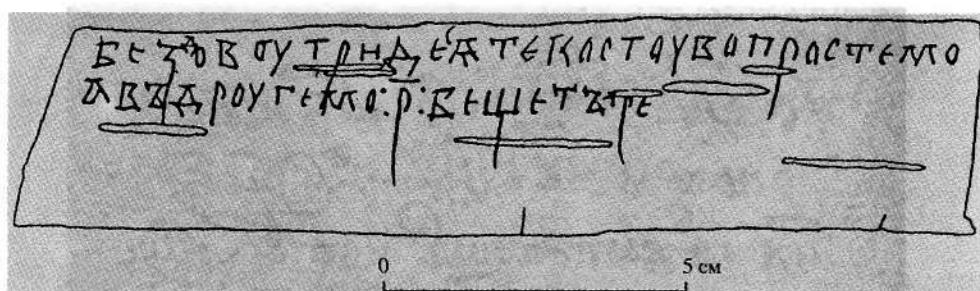 БЕЗДОВОУТРИДЕСѦТЕКОСТОУВОПРОСТЕМО
АВЪДРОУГЕМО:Р:БЕШЕТЪРЕ
0 5 см